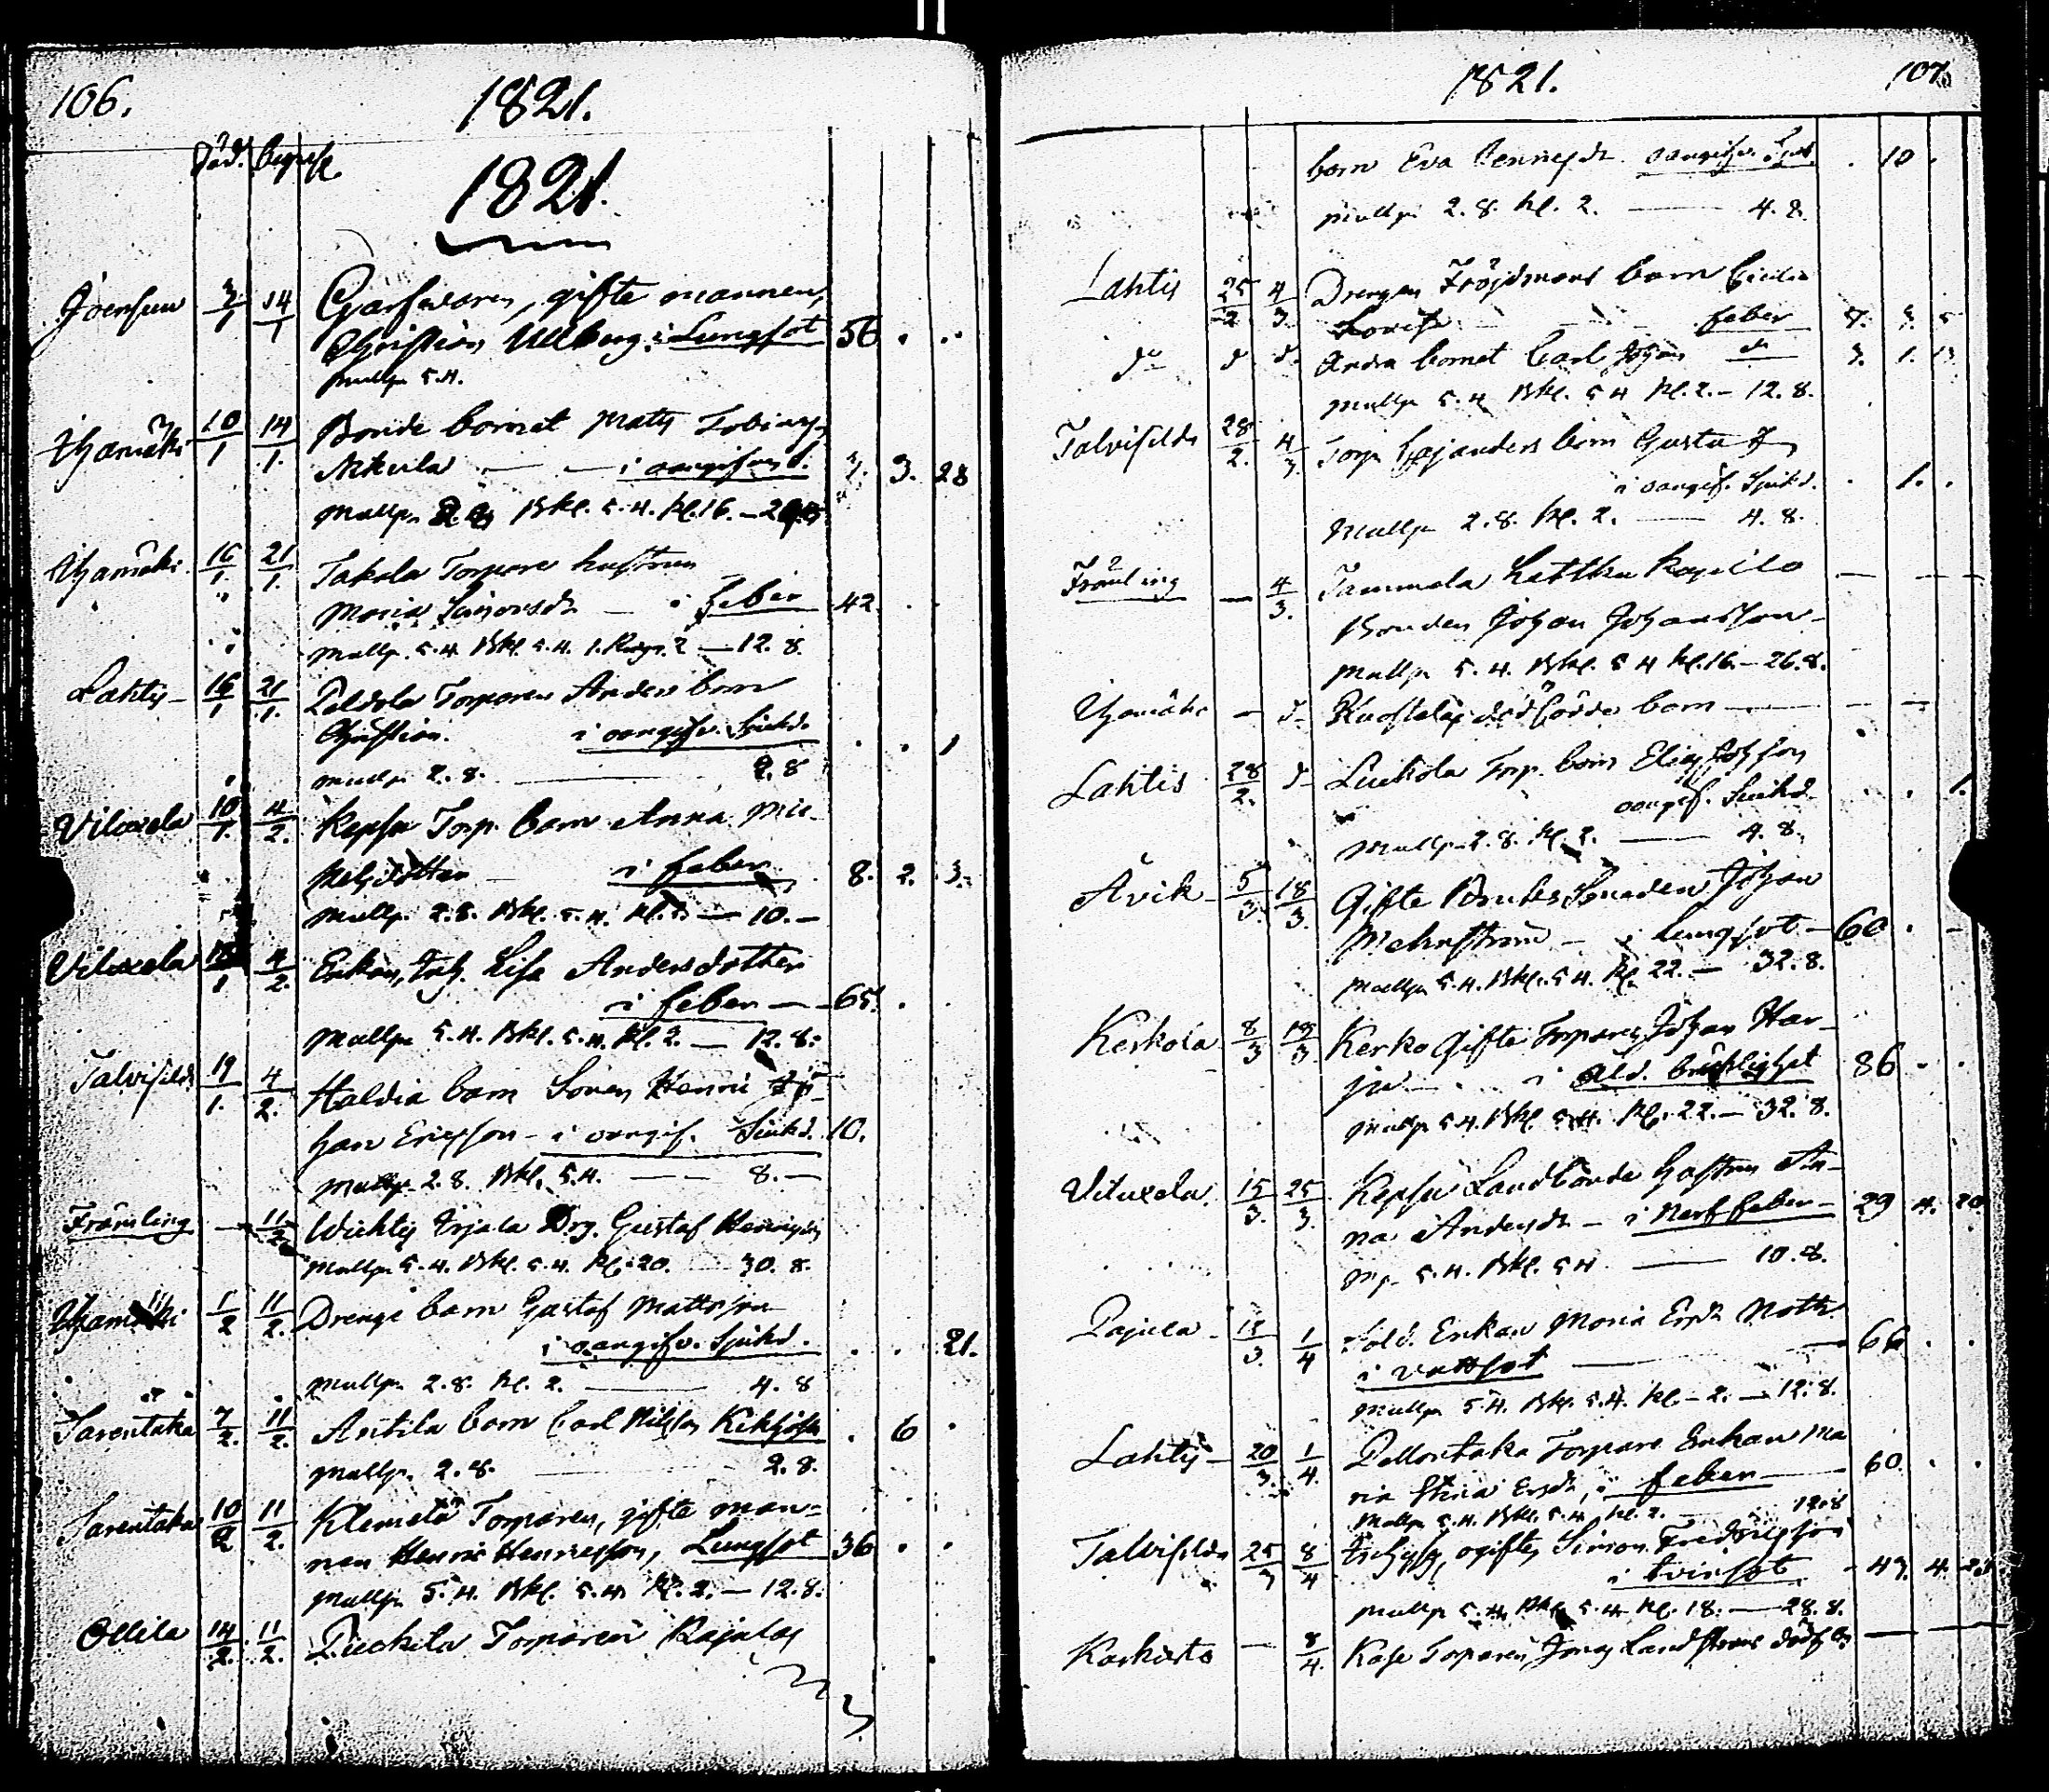 106.
1821.
Död. Begrafn.
1821.
Joensuu 3/1 14/1 Garfvaren, gifte mannen,
Christian Ullberg i Lungsot 56 . .
Mullp. 5.4.
Yjamäki 10/1 14/1. Bonde barnet Matts Tobiass.
Nikula — — i oangifven s. 3. 28
Mullp. Bkl. 5.4. Kl. 16. —
Yjamäki 16/1. 21/1. Takala Torpare hustrun
Maria Simonsdr — i feber 42 . .
Mullp. 5.4. Bkl. 5.4. 2 — 12. 8.
Lahtis — 16/1 21/1. Peldola Torparen Anders barn
Christian. i oangifv. Sjukd. . . 1
Mullp. 2.8. — 2.8
Viluxela 10/1. 4/2. Kepsu Torp. barn Anna Mic-
helsdotter — i feber 8. 2. 3.
Mullp. 2.8. Bkl. 5.4. Kl. 2. — 10. —
Viluxela 4/2. Enkan, Lisa Andersdotter
i feber — 65. .
Mullp. 5.4. Bkl. 5.4. Kl. 2. — 12. 8.
Talvisilda 19/1. 4/2. Haldia barn Sonen Henric Jo-
han Ericsson — i oangif. Sjukd. 10.
Mullp. 2.8. Bkl. 5.4. — — 8. —
Främling — 11/2 Wichtis Irjala Drg. Gustaf
Mullp. 5.4. Bkl. 5.4. Kl. 20. — 30. 8.
Yjamäki 1/2 11/2. Drenge barn Gustaf Mattsson
i oangifv. Sjukd. . . 21.
Mullp. 2.8. Kl. 2. — 4.8
Sarentaka 7/2. 11/2. Antila barn Carl Nilsson Kikhosta . 6 .
Mullp. 2.8. — 2.8.
Sarentaka 10/2 11/2. Klemelä Torparen, gifte man-
nen Henric Henricsson, Lungsot 36 . .
Mullp. 5.4. Bkl. 5.4. Kl. 2. — 12.8.
Ollila 14/2. 11/2. Torparen Rajalas
1821.
107.
barn Eva Henricsdr. oangifv. Sjukd. . 10 .
Mullp. 2.8. Kl. 2. — 4.8.
Lahtis 25/2 4/3. Drengen Fröjdmans barn Cecilia
Lovisa — — feber
do d. d. Andra barnet Carl Johan do 3. 1. 13
Mullp. 5.4. Bkl. 5.4 Kl. 2. — 12.8.
Talvisilda 28/2. 4/3. Torp. Cajanders barn Gusta
i oangif. Sjukd. . 1. .
Mullp. 2.8. Kl. 2. — 4.8.
Främling — 4/3. Tammela Kapells — — —
Bonden Johan Johansson
Mullp. 5.4. Bkl. 5.4 Kl. 16. — 26.8.
Yjamäki — d. dödfödde barn — — —
Lahtis 28/2. d. Luckola Torp. barn Elias Johsson
oangif. Sjukd. . . 1.
Mullp. 2.8. Kl. 2. — 4.8.
Åvik — 5/3. 18/3 Gifte Bruks Smeden Johan
Malmström — i Lungsot — 60 . —
Mullp. 5.4. Bkl. 5.4. Kl. 22. — 32.8.
Kerkola 8/3 18/3. Kerko Gifte Torparen Johan Har-
ju — i Ald. bräcklighet 86 . .
Mullp. 5.4. Bkl. 5.4. Kl. 22. — 32.8.
Viluxela 15/3. 25/3. Kepsu Landbonde hustrun An-
na Andersdr — i Nerffeber — 29 4. 20
Mp. 5.4. Bkl. 5.4 — 10.8.
Pajula 1/4 Sold. Enkan Maria Ersdr
i vattsot — 66 . .
Mullp. 5.4. Bkl. 5.4. Kl. — 2. — 12.8.
Lahtis — 20/3. 1/4. Pellontaka Torpare Enkan Ma
ria Stina Ersdr, i feber — 60 . .
Mullp. 5.4. Bkl. 5.4. Kl. 2. — 12.8
Talvisilda 25/3 8/4 ogifte, Simon Fredricsson
i tvinsot — 43. 4. 23
Mullp. 5.4. Bkl. 5.4. Kl. 18. — 28.8.
Karkusto — 8/4. Torparen Jonas Landströms dödf. — —